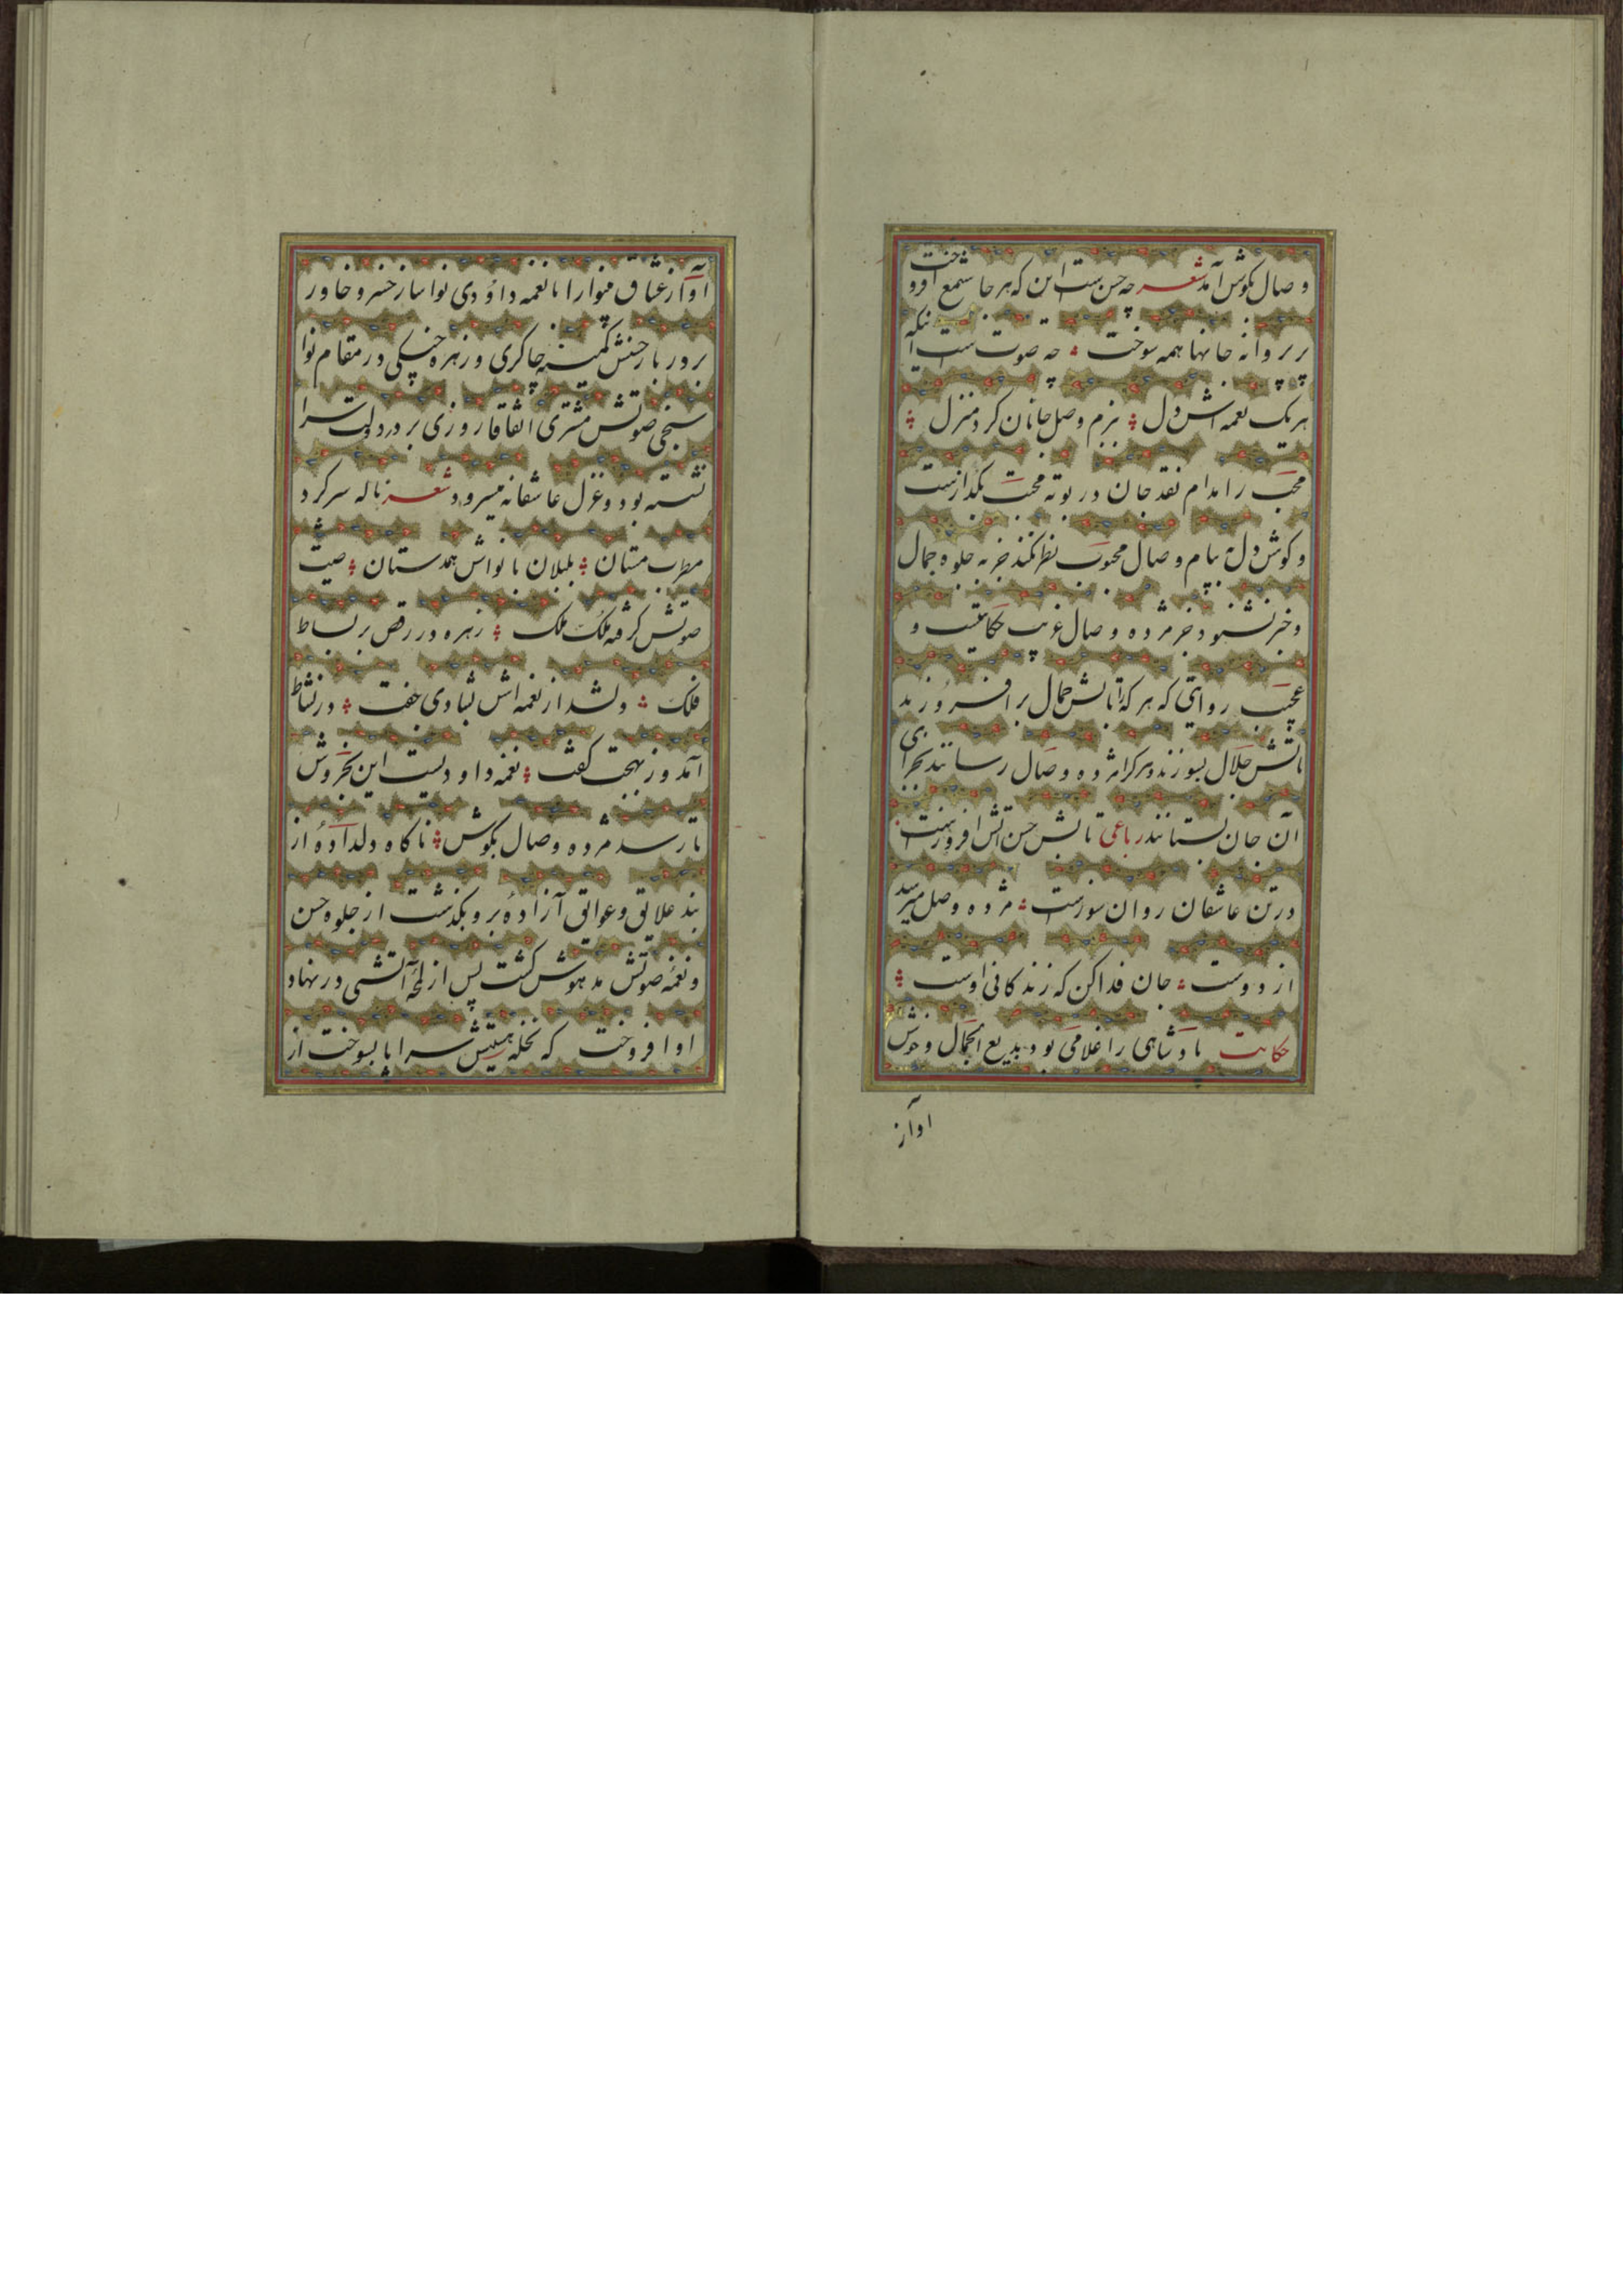 وصال بگوش آمد شعر چه حسن ست این که هر جا شمع افروخت
بر پروانه جانها همه سوخت چه صوت ست آنکه
هر یک نغمه اش دل بزم وصل جانان کرد منزل
محب را مدام نقد جان در بوته محبت بگدازست
و گوش دل به پیام وصال محبوب نظر نکند جز به جلوه جمال
و خبر نشنود جز مژده وصال غریب حکایتیست و
عجب روایتی که هر که را تابش جمال بر افروزند
باتش جلال بسوزند و هر کرا مژده وصال رسانند
آن جان بستانند رباعی تابش حسن آتش افروزست
در تن عاشقان روان سوزست مژده وصل میرسد
از دوست جان فدا کن که زندکانی اوست
حکایت پادشاهی را غلامی بود بدیع الجمال و خوش
آواز
آواز عشاق بینوا را با نغمه داؤدی نوا ساز خسرو خاور
بر در بار حسنش کمینه چاکری و زهره چنگی در مقام نوا
سنجی صوتش مشتری اتفاقا روزی بر در دولت سرا
نشسته بود و غزل عاشقانه میسرود شعر ناله سر کرد
مطرب مستان بلبلان با نواش همدستان صیت
صوتش گرفته ملک بملک زهره در رقص بر بساط
فلک ولشد از نغمه اش بشادی جفت در نشاط
آمد و ز بهجت گفت نغمه داودیست این بخروش
یا رسد مژده وصال بگوش ناگاه دلداده از
بند علایق و عوایق آزاده برو بگذشت از جلوه حسن
و نغمه صوتش مدهوش گشت پس از لمحه آتشی در نهاد
او افروخت که نخله هستیش سراپا بسوخت از